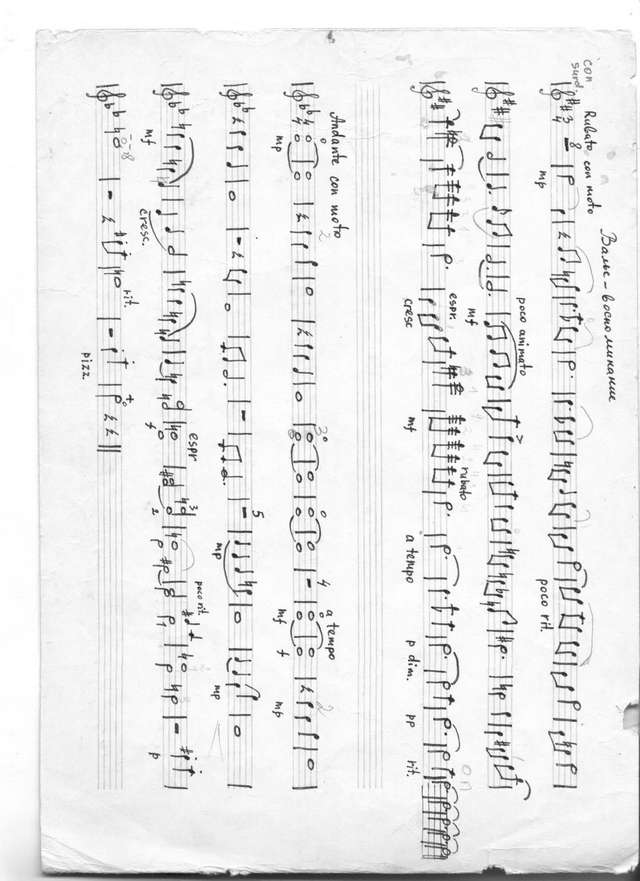 Вальс - воспоминание
con
surd.
Rubato con moto
3
4
8
mp poco rit.
poco animato
mf
espr. rubato
cresc mf a tempo p dim. pp rit.
Andante con moto
a tempo
4
mp mf f mp
5
mp mp
espr poco rit.
mf cresc. f p
rit.
pizz